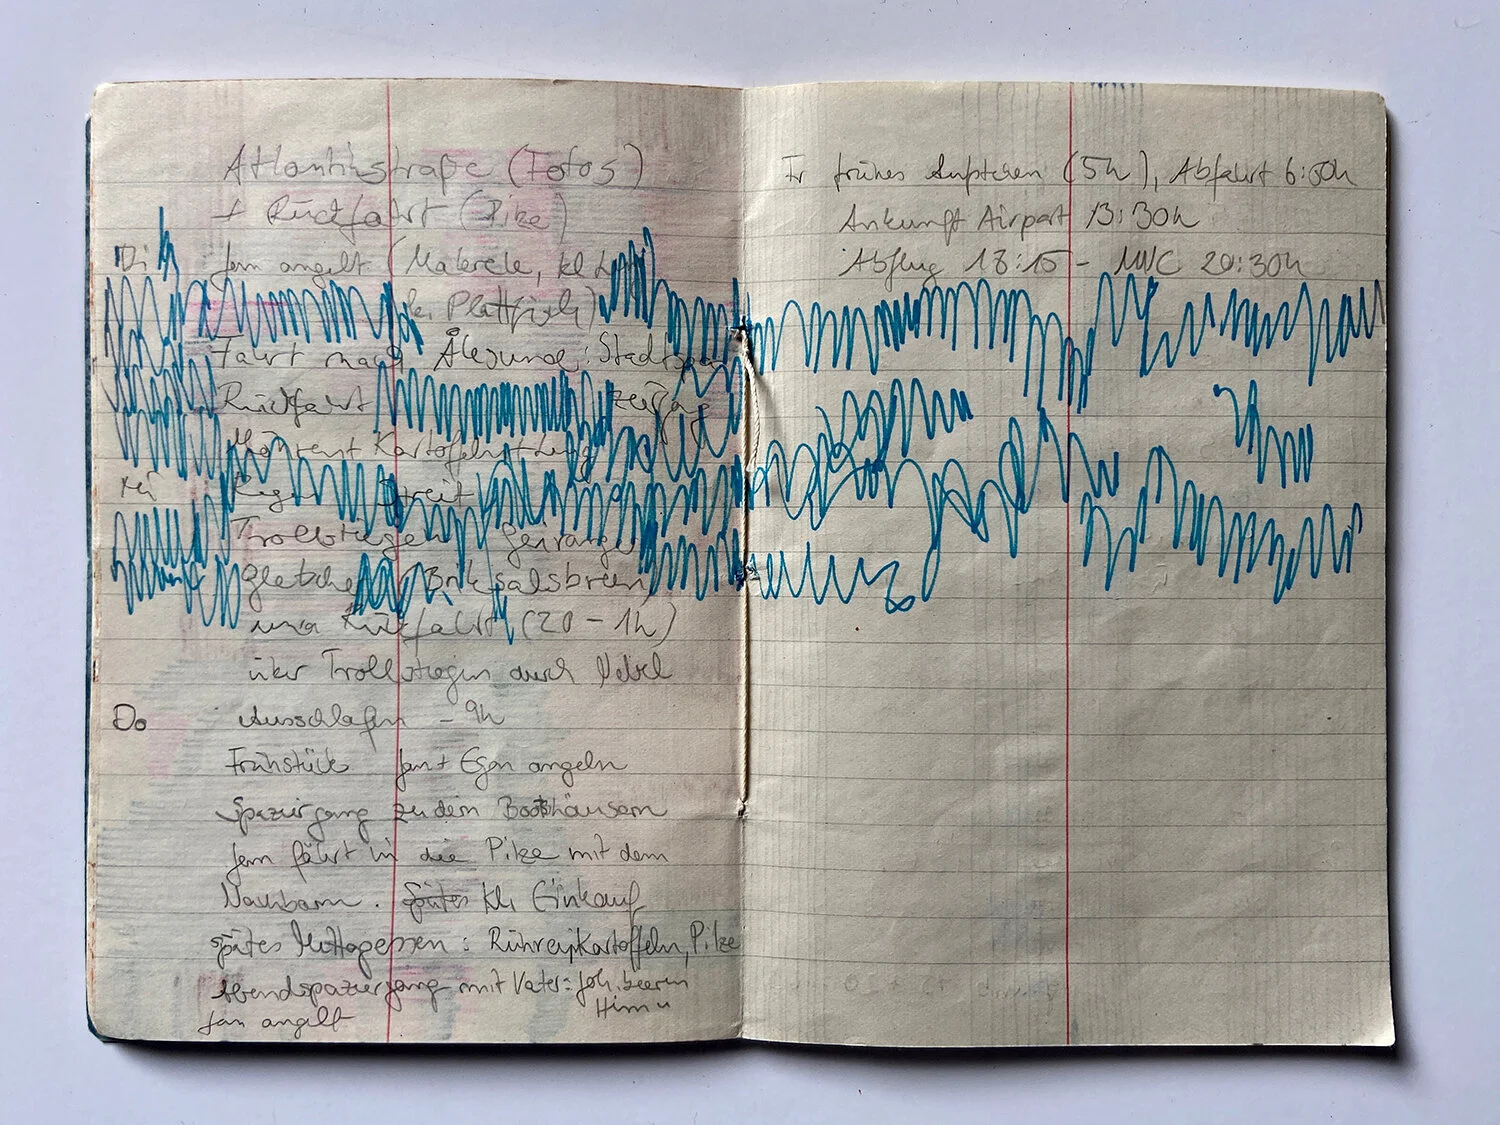 Atlantikstraße (Fotos)
+ Rückfahrt (Pilze)
Di Jan angelt (Makrele, kl
kl. Plattfisch)
Fahrt nach Ålesund: Stadtspa
Rückfahrt
Kartoffel
Mi Regen Streit
Trollstiegen Geiranger
Gletscher Briksdalsbreen,
Rückfahrt (20 – 1h)
über Trollstiegen durch Nebel
Do Ausschlafen – 9h
Frühstück Jan + Egon angeln
Spaziergang zu den Bootshäusern
Jan fährt in die Pilze mit dem
Nachbarn. spätes kl. Einkauf
spätes Mittagessen: Rührei, Kartoffeln, Pilze
Abendspaziergang mit Vater: Joh.beeren
Him "
Jan angelt
Fr frühes Aufstehen (5h), Abfahrt 6:50h
Ankunft Airport 13:30h
Abflug 18:15 – MUC 20:30h